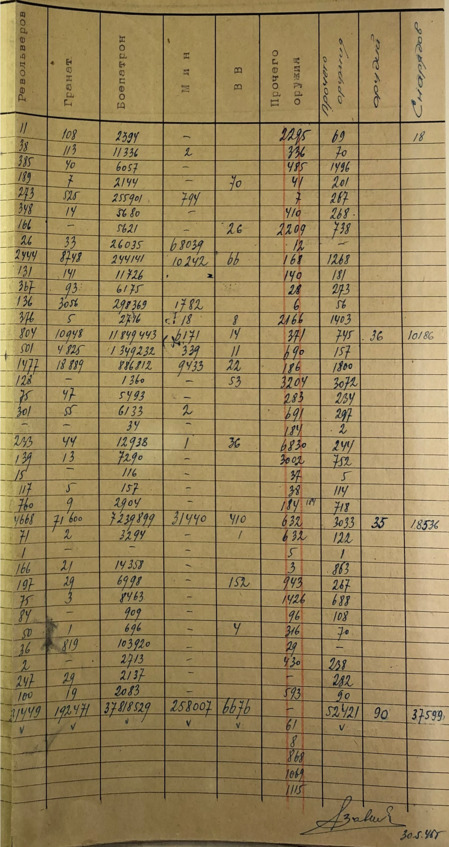 Револьверов Гранат Боепатрон Мин ВВ Прочего оружия орудий Снарядов
11 108 2394 - 2295 69 18
38 113 11336 2 336 70
385 40 6057 485 1496
189 7 2144 - 70 41 201
273 525 255901 794 7 267
348 14 5680 - 410 268
166 - 5621 - 26 2209 738
26 33 26035 68039 12 -
2444 8748 244141 10242 66 168 1268
131 141 11726 140 181
367 93 6175 - 28 273
136 3056 298369 1782 6 56
376 5 18 8 2166 1403
804 10948 11849443 6171 14 371 745 36 10186
501 4825 1349232 339 11 690 157
1477 18889 886812 9433 22 186 1800
128 - 1360 - 53 3204 3072
75 47 5493 - 283 234
301 55 6133 2 691 297
- - 34 - 184 2
233 44 12938 1 36 6830 244
139 13 7290 - 3002 752
15 - 116 - 37 5
117 5 157 - 38 114
760 9 2904 - 184 718
4668 71600 7239899 31440 410 632 3033 35 18536
71 2 3294 - 1 632 122
1 - - - 5 1
166 21 14358 - 3 863
197 29 6998 - 152 943 267
75 3 8463 - 1426 688
84 - 909 - 96 108
50 1 696 - 4 316 70
36 819 103920 - 29 -
2 - 2713 - 430 238
247 29 2137 - - 282
100 19 2083 - 593 90
31449 192471 37818529 258007 6676 - 52421 90 37599
v v v v v 61 v
8
868
1069
1115
30.5.46г